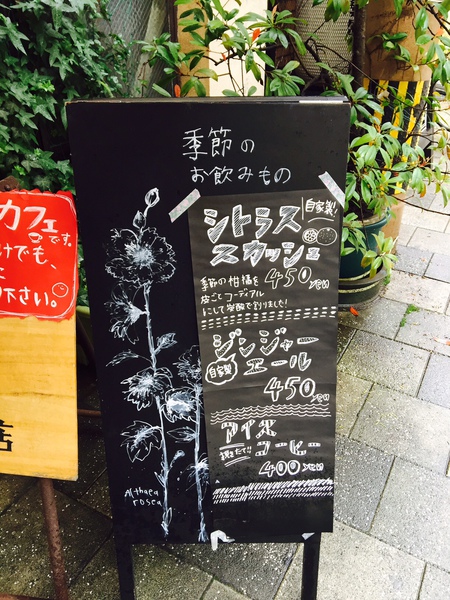 季節の
お飲みもの
自家製!
シトラス
スカッシュ
450yen
季節の柑橘を
皮ごとコーディアル
にして炭酸で割りました!
ジンジャー
自家製
エール
450yen
アイス
コーヒー
400yen
Althaea
rosea
カフェ
です。
けでも、
に
下さい。
店